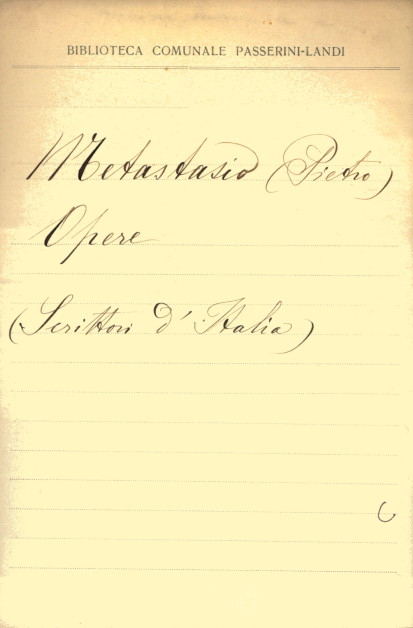 BIBLIOTECA COMUNALE PASSERINI-LANDI
Metastasio (Pietro)
Opere
(Scrittori d'Italia)